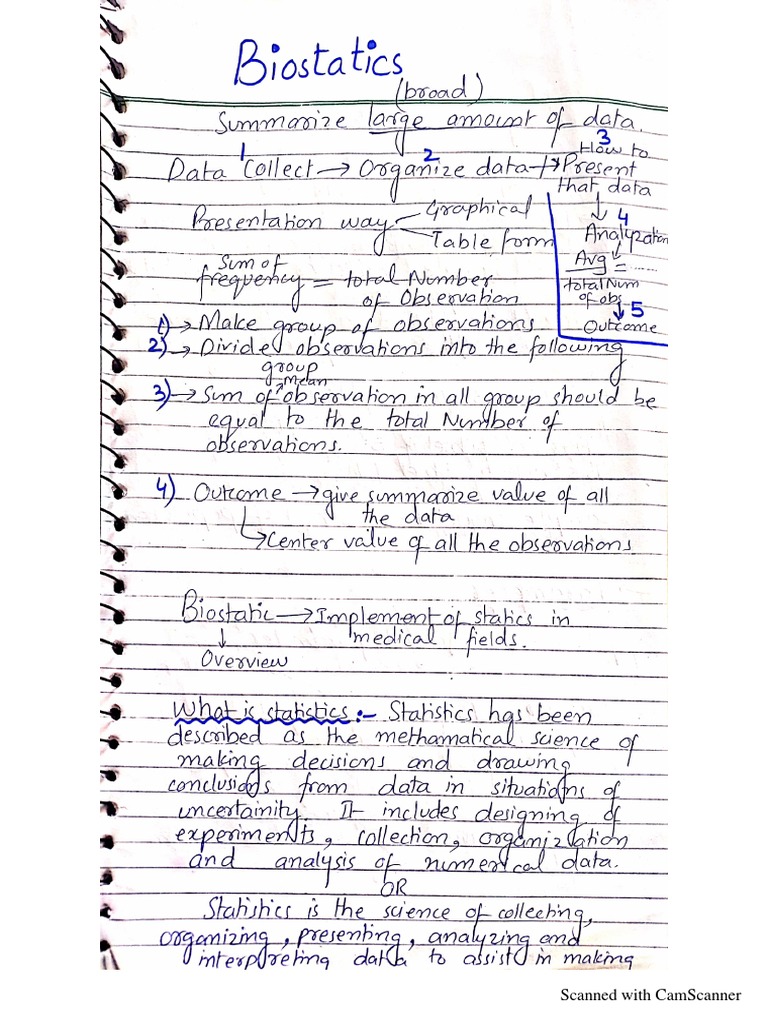 Biostatics
(broad)
Summarize large amount of data.
1 2 3
Data Collect → Organize data → Present
How to
that data
↓ 4
Analyzation
Presentation way
Graphical
Table form
Avg =
total Num
of obs
↓ 5
Outcome
Sum of
frequency = total Number
of Observation
1) → Make group of observations
2) → Divide observations into the following
group
mean
3) → Sum of observation in all group should be
equal to the total Number of
observations.
4) Outcome → give summarize value of all
the data
↳ Center value of all the observations
Biostatic → Implement of statics in
medical fields.
↓
Overview
What is statistics :- Statistics has been
described as the methamatical science of
making decisions and drawing
conclusions from data in situations of
uncertainity. It includes designing of
experiments, collection, organization
and analysis of numerical data.
OR
Statistics is the science of collecting,
organizing, presenting, analyzing and
interpreting data to assist in making
Scanned with CamScanner